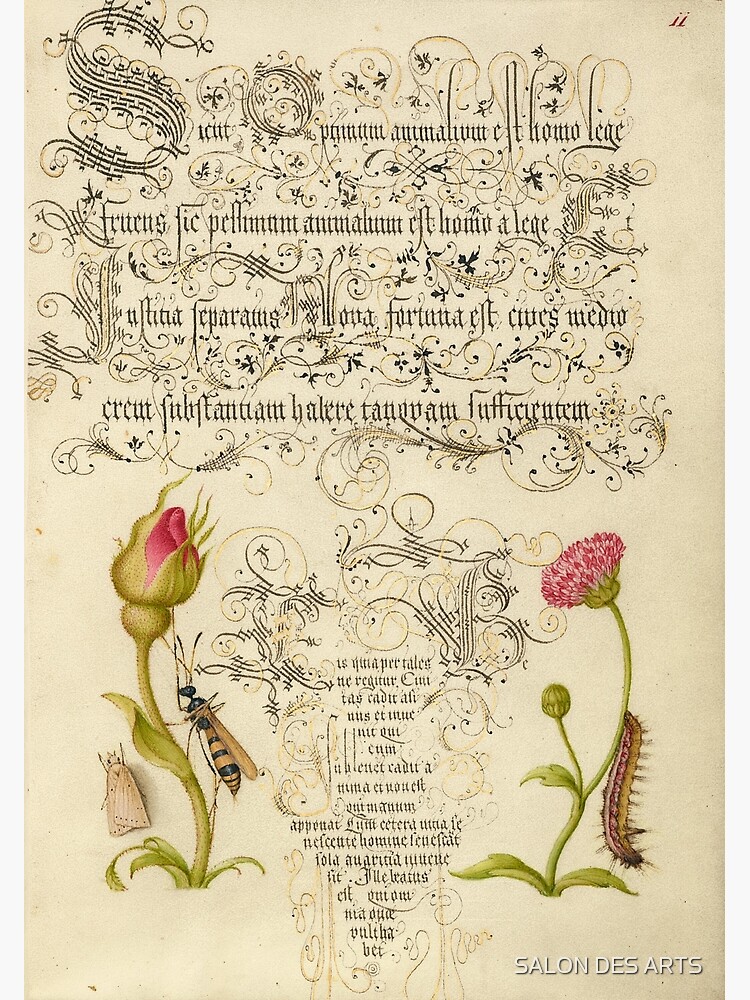 ii
Sicut Optimum animalium est homo lege
fruens, sic pessimum animalium est homo a lege Et
Iustitia separatus Nova fortuna est, cives medio
crem substantiam habere tanquam sufficientem
is quia per tales
ne regitur Civi
tas cadit asi
nus et inve
nit qui
eum
sublevet cadit a
nima et non est
qui manum
apponat Cum cetera vitia se
nescente homine senescāt
sola avaritia iuvene
sit. Ille beatus
est qui om
nia quæ
vult ha
bet
SALON DES ARTS